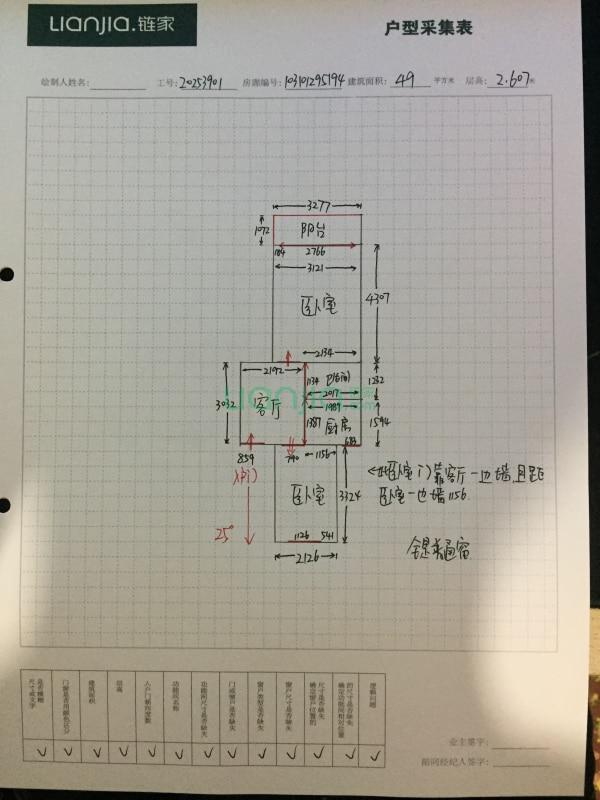 Lianjia.链家
户型采集表
绘制人姓名: 工号: 20253901 房源编号: 103101295194 建筑面积: 49 平方米 层高: 2.607米
3277
1072
阳台
184 2766
3121
卧室
4307
2134
2192
1134
卫生间
1232
Lianjia.链家
2017
3032
客厅
1989
1387
厨房
1594
684
859
790
1156
<此卧室门靠客厅一边墙,且距
入户门
卧室
3324
卧室一边墙1156.
25°
1126 541
全是普通窗
2126
是否模糊尺寸或文字
门窗是否用颜色区分
建筑面积
层高
入户门朝向度数
功能间名称
功能间尺寸是否缺失
门或窗户是否缺失
窗户类型是否缺失
窗户尺寸是否缺失
确定窗户位置的尺寸是否缺失
确定功能间相对位置的尺寸是否缺失
逻辑问题
✓ ✓ ✓ ✓ ✓ ✓ ✓ ✓ ✓ ✓ ✓ ✓ ✓
业主签字:
陪同经纪人签字: